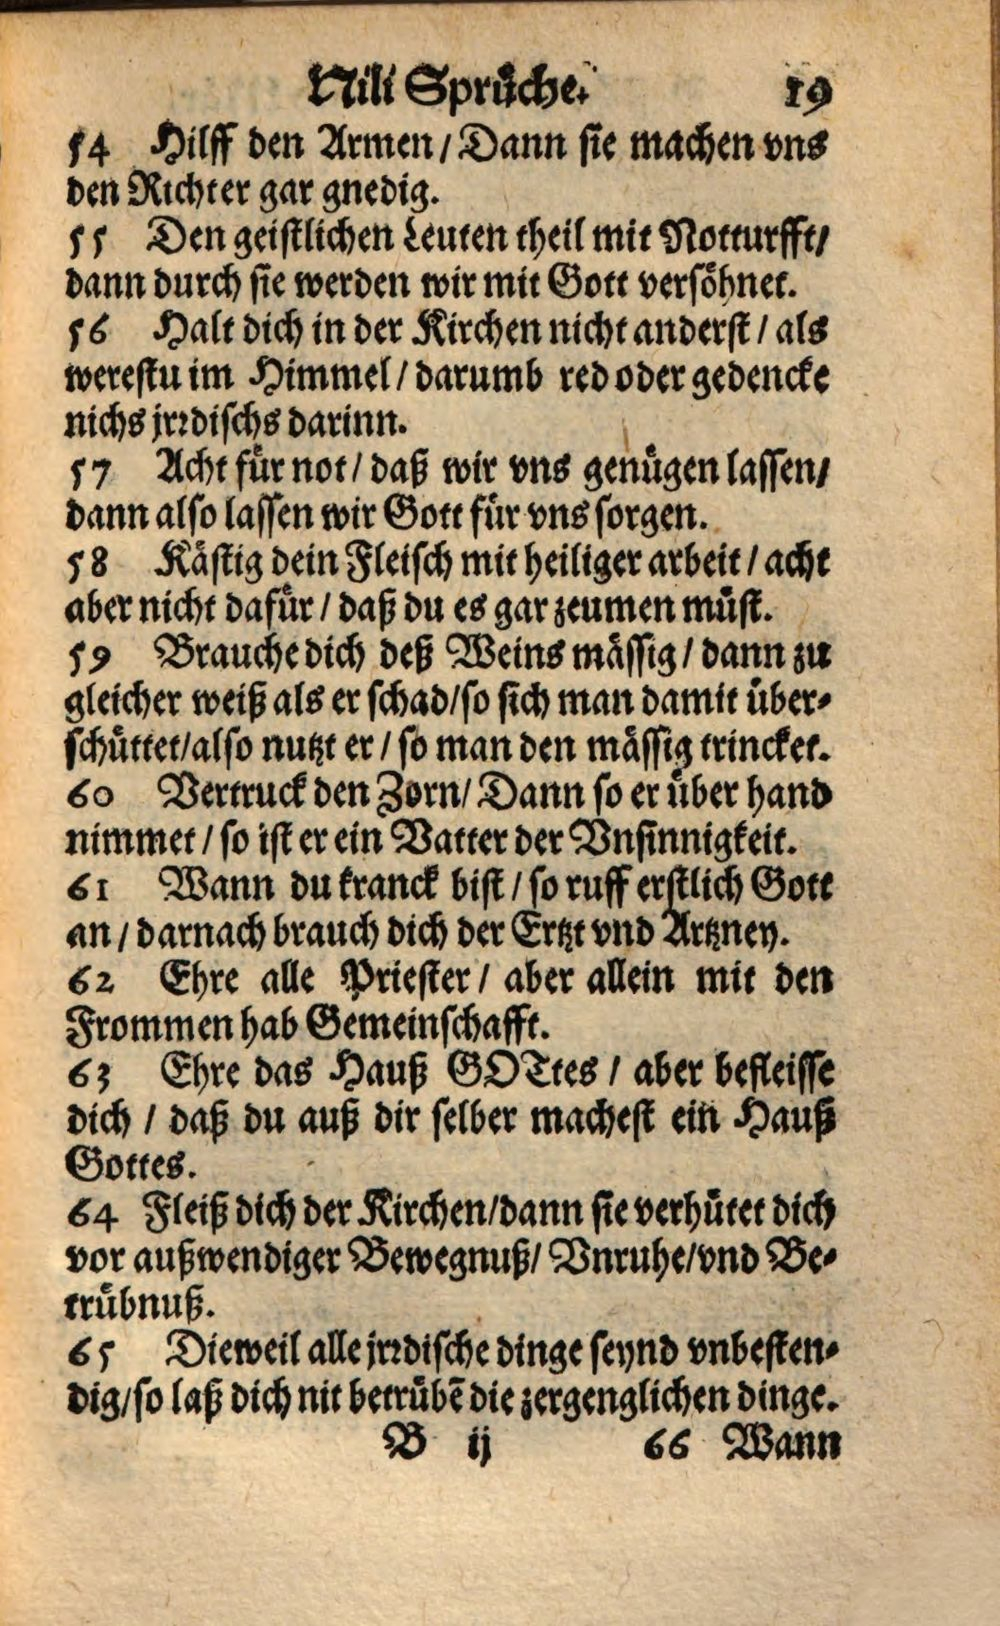 Nili Sprüche. 19
54 Hilff den Armen / Dann sie machen vns
den Richter gar gnedig.
55 Den geistlichen Leuten theil mit Notturfft/
dann durch sie werden wir mit Gott versöhnet.
56 Halt dich in der Kirchen nicht anderst / als
werestu im Himmel / darumb red oder gedencke
nichs jrrdischs darinn.
57 Acht für not / daß wir vns genügen lassen/
dann also lassen wir Gott für vns sorgen.
58 Kästig dein Fleisch mit heiliger arbeit / acht
aber nicht dafür / daß du es gar zeumen müst.
59 Brauche dich deß Weins mässig / dann zu
gleicher weiß als er schad/so sich man damit über-
schüttet/also nutzt er / so man den mässig trincket.
60 Vertruck den Zorn/ Dann so er über hand
nimmet / so ist er ein Vatter der Vnsinnigkeit.
61 Wann du kranck bist / so ruff erstlich Gott
an / darnach brauch dich der Ertzt vnd Artzney.
62 Ehre alle Priester / aber allein mit den
Frommen hab Gemeinschafft.
63 Ehre das Hauß GOTtes / aber befleisse
dich / daß du auß dir selber machest ein Hauß
Gottes.
64 Fleiß dich der Kirchen/dann sie verhütet dich
vor außwendiger Bewegnuß/ Vnruhe/vnd Be-
trübnuß.
65 Dieweil alle jrrdische dinge seynd vnbesten-
dig/so laß dich nit betrübē die zergenglichen dinge.
B ij 66 Wann